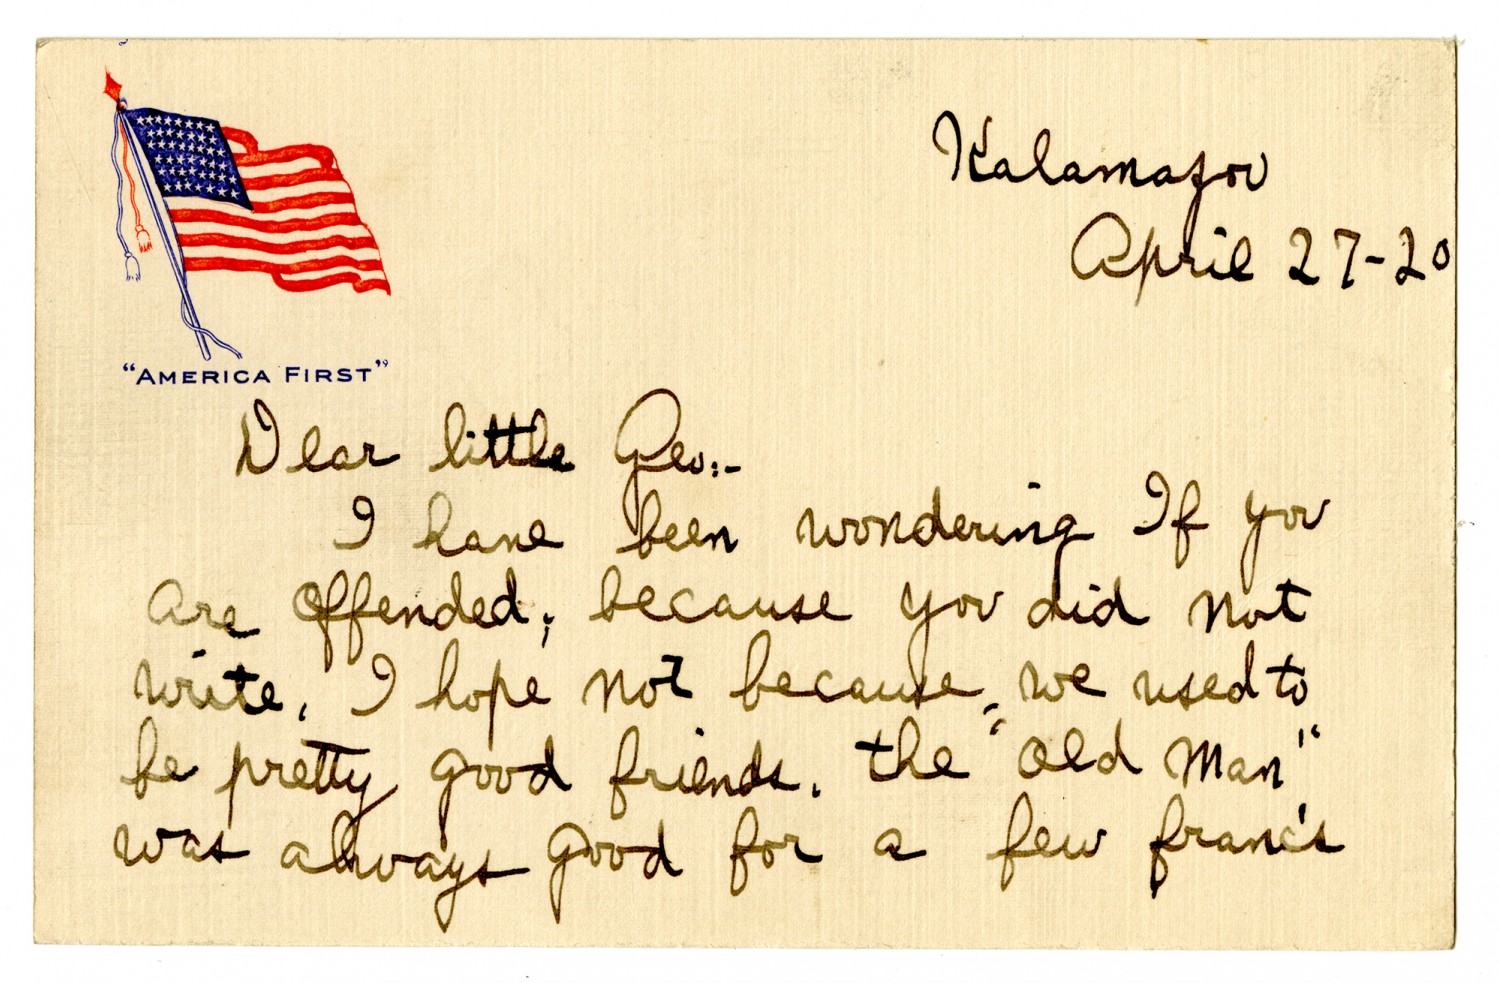 Kalamazoo
April 27-20
"AMERICA FIRST"
Dear little Geo:-
I have been wondering If you
are offended; because you did not
write. I hope not because, we used to
be pretty good friends. the "old Man"
was always good for a few franc's